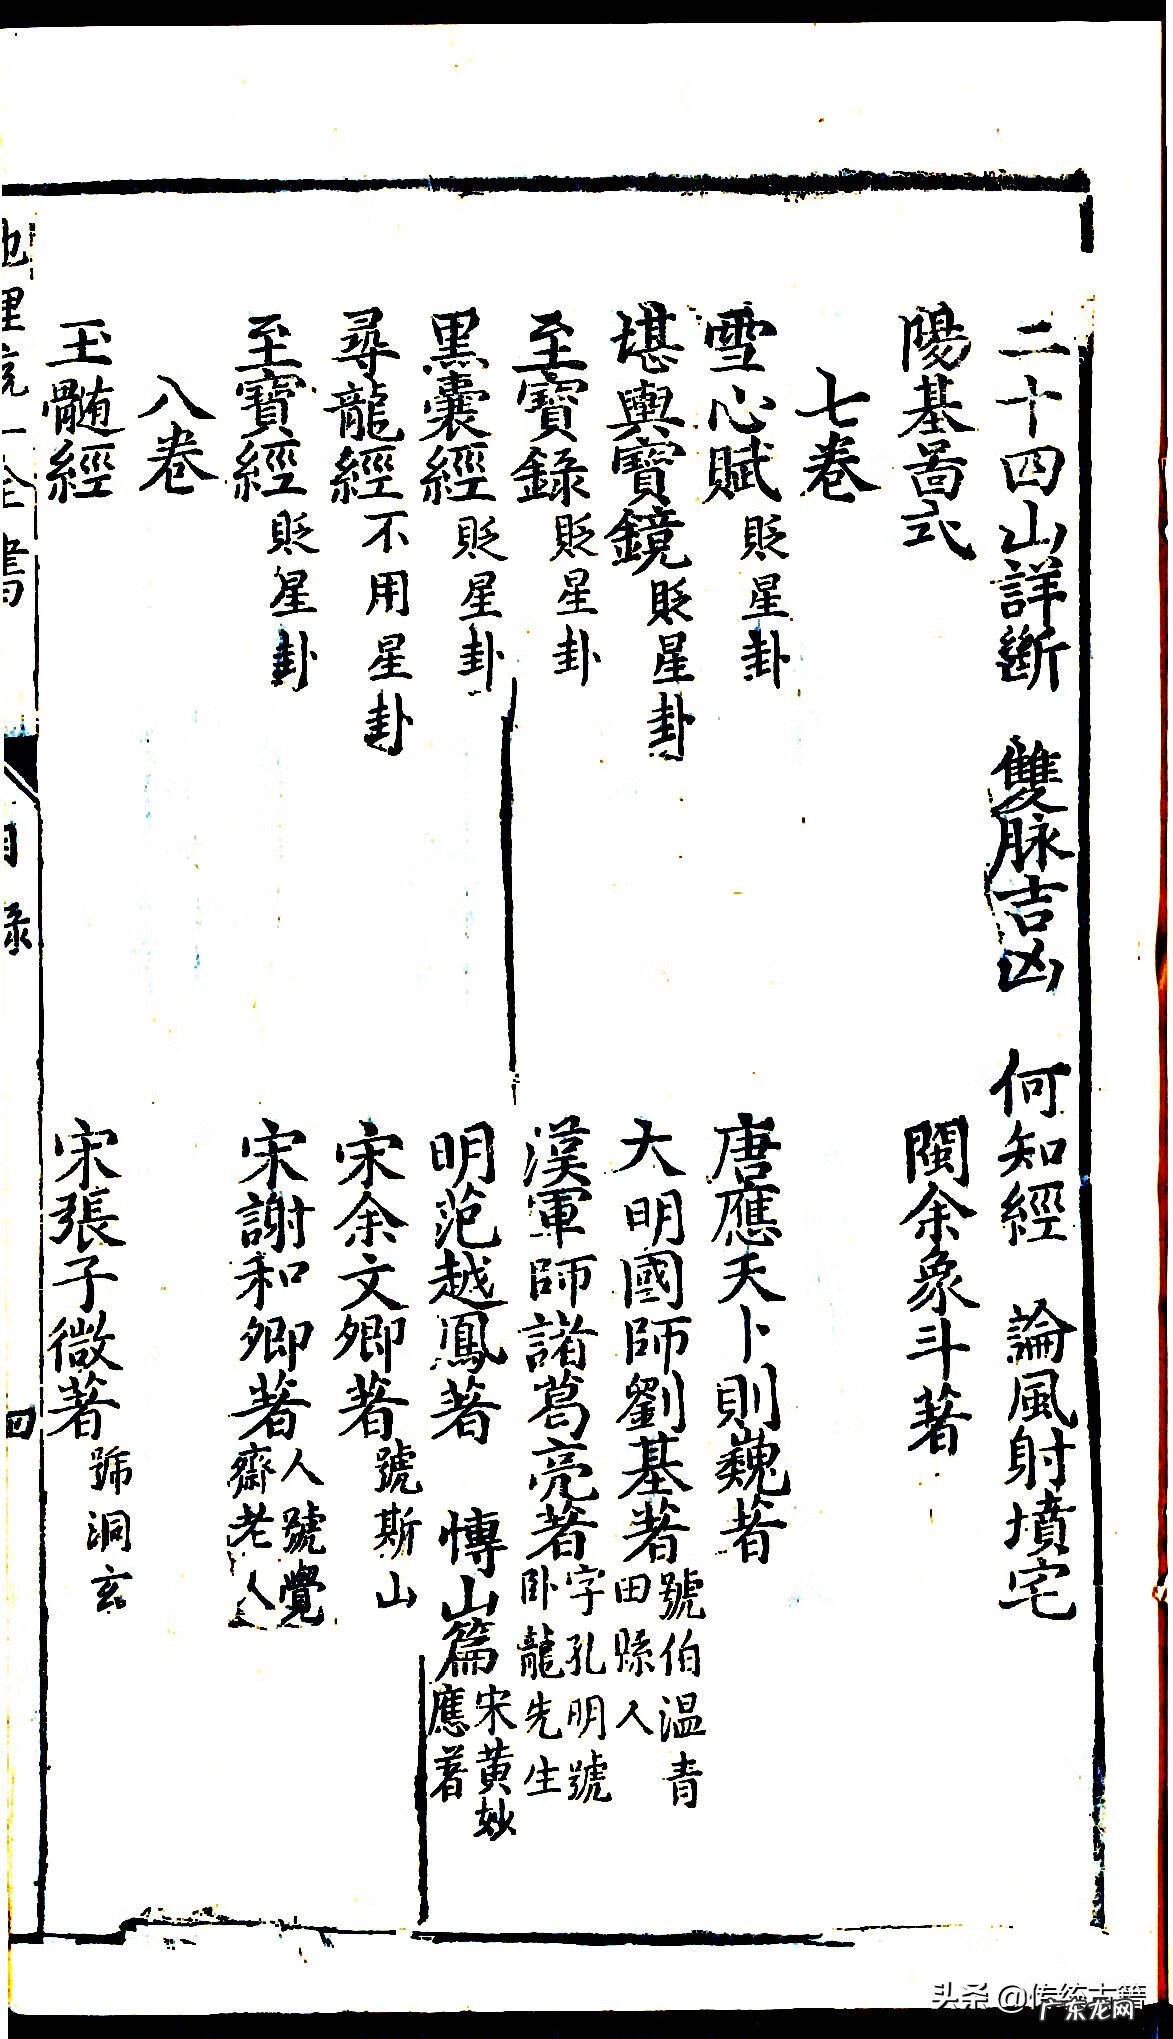 二十四山詳斷　雙脉吉凶　何知經　論風射墳宅
陽基啚式　閩余象斗著
七卷
雪心賦　貶星卦　唐應天卜則巍著
堪輿寶鏡　貶星卦　大明國師劉基著　號伯温青田縣人
至寶錄　貶星卦　漢軍師諸葛亮著　字孔明號卧龍先生
黑囊經　貶星卦　明范越鳳著　博山篇　宋黄妙應著
尋龍經　不用星卦　宋余文卿著　號斯山
至寶經　貶星卦　宋謝和卿著　人號覺齋老人
八卷
玉髓經　宋張子微著　號洞玄
地理統一全書　目錄　四
头条 @传统古籍
广东龙网